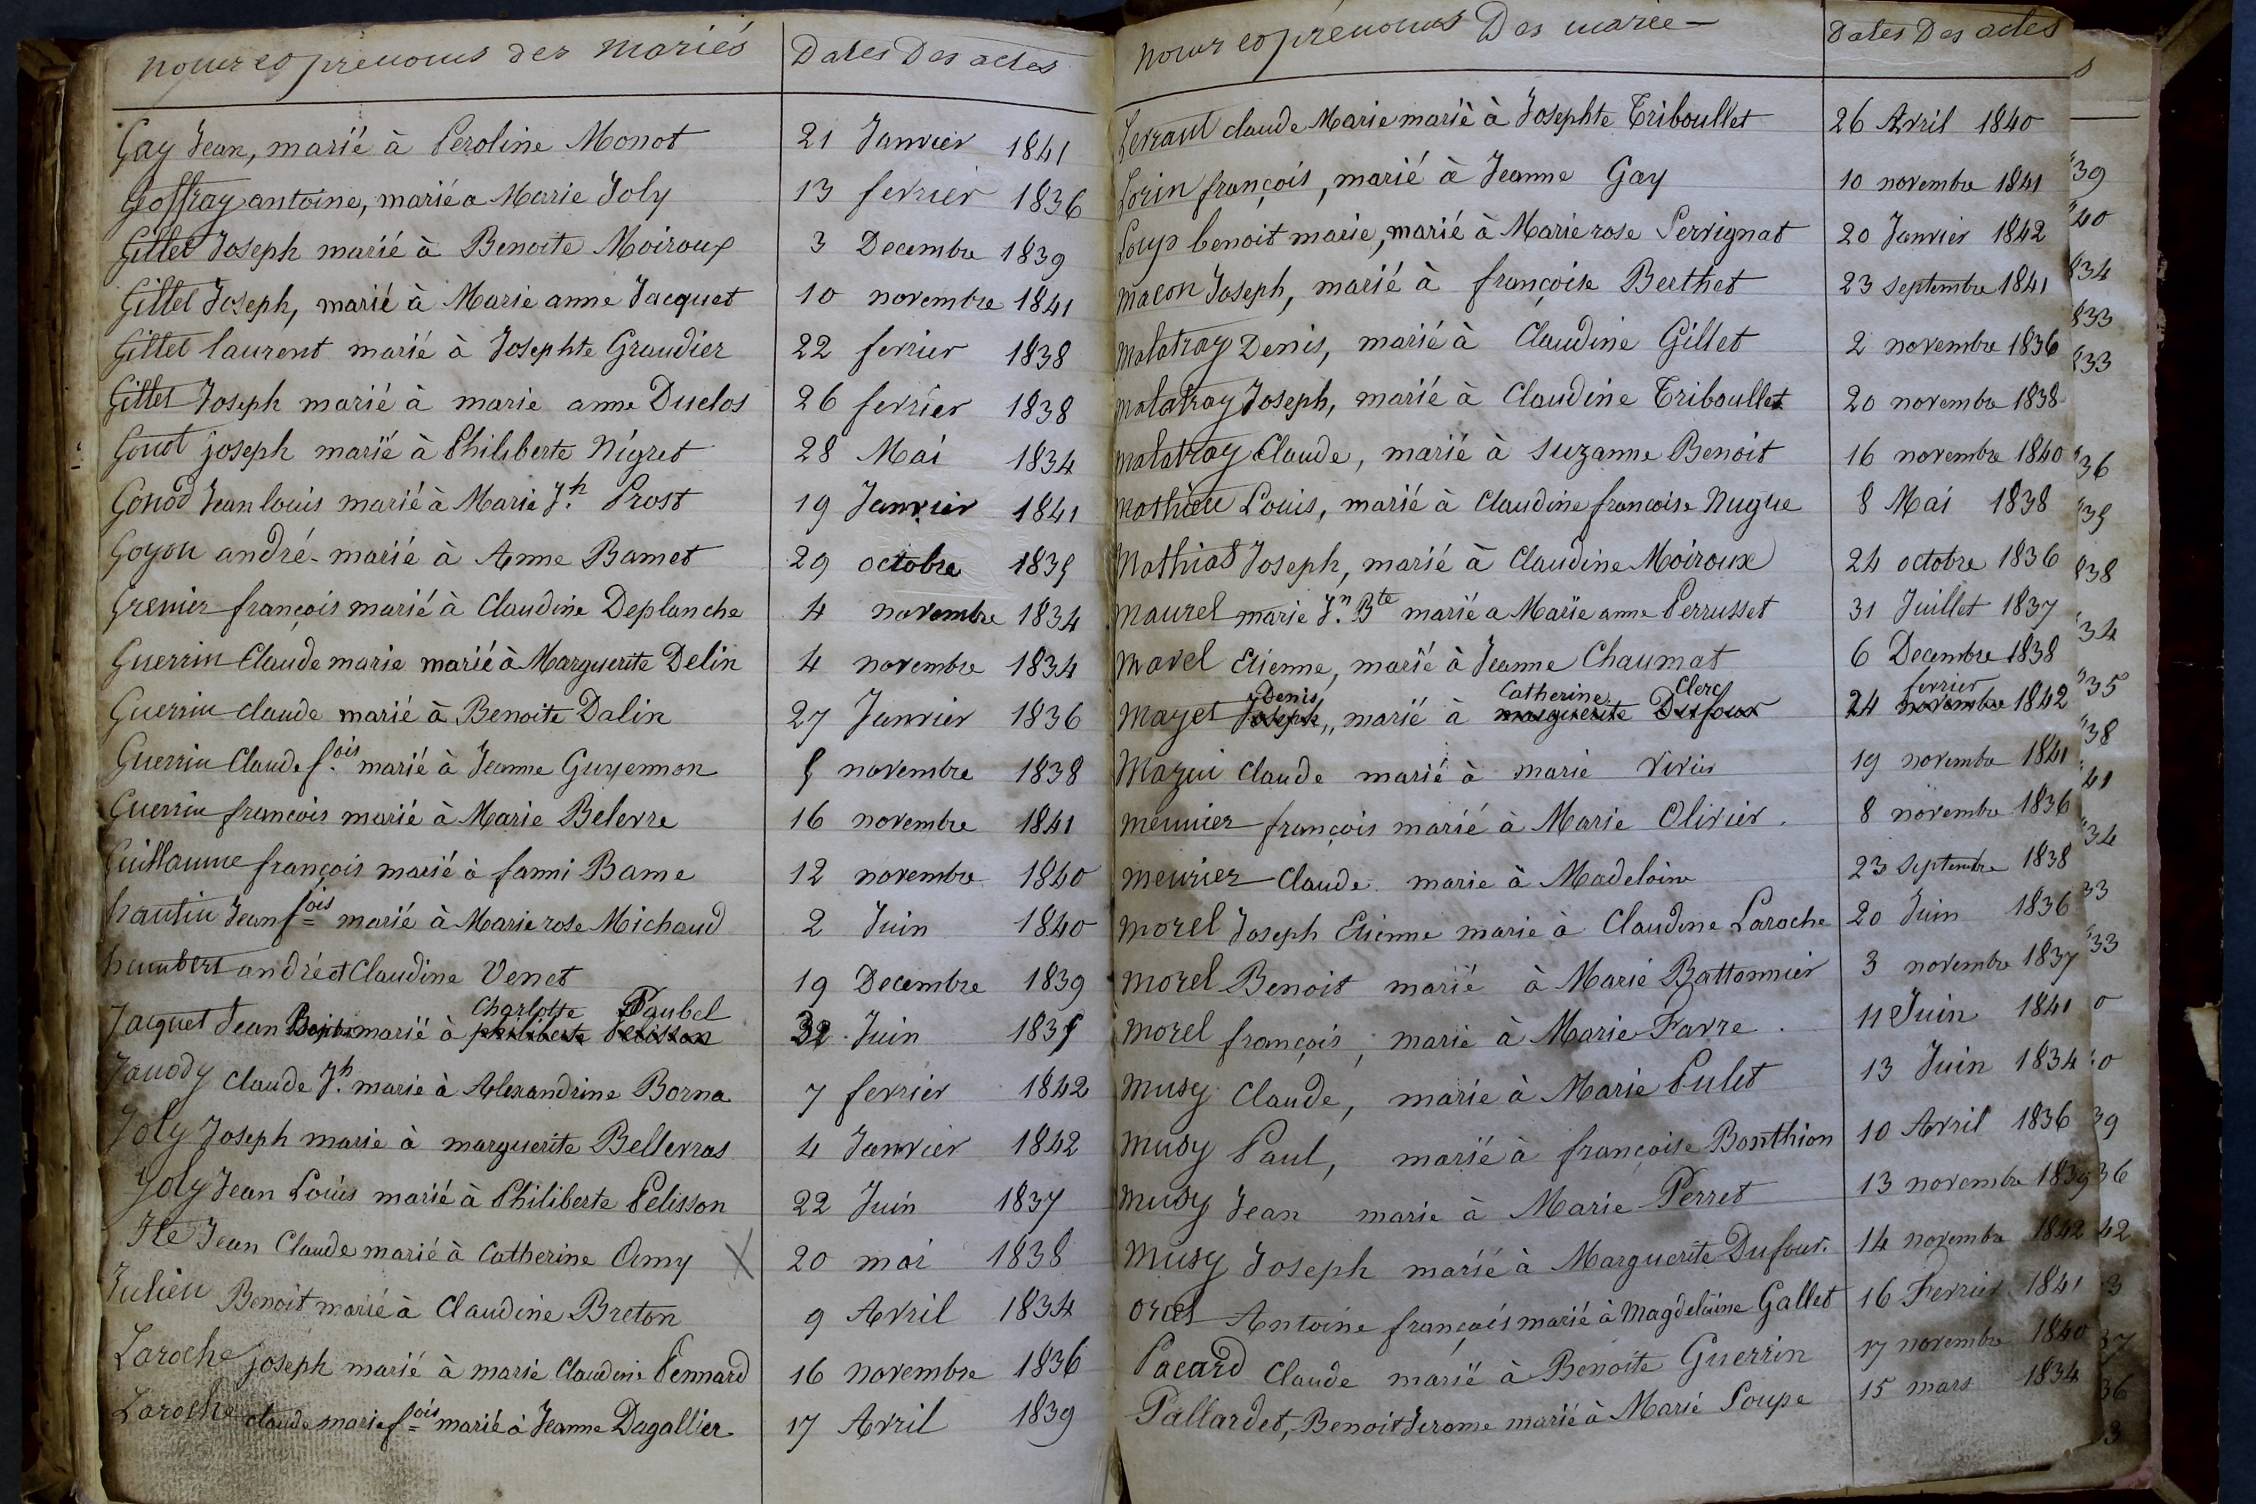 noms et prénoms des mariés Dates Des actes
Gay Jean, marié à Peroline Monot 21 Janvier 1841
Geoffray antoine, marié a Marie Joly 13 fevrier 1836
Gillet Joseph marié à Benoite Moiroux 3 Decembre 1839
Gillet Joseph, marié à Marie anne Jacquet 10 novembre 1841
Gillet laurent marié à Josephte Graudier 22 fevrier 1838
Gillet Joseph marié à marie anne Duclos 26 fevrier 1838
Gonot joseph marié à Philiberte Nigret 28 Mai 1834
Gonod Jean louis marié à Marie Jh. Prost 19 Janvier 1841
Goyon andré marié à Anne Bamet 29 octobre 1835
Grenier françois marié à Claudine Deplanche 4 novembre 1834
Guerrin Claude marie marié à Marguerite Delin 4 novembre 1834
Guerrin claude marié à Benoite Dalin 27 Janvier 1836
Guerrin Claude f.ois marié à Jeanne Guyennon 5 novembre 1838
Guerrin françois marié à Marie Belevre 16 novembre 1841
Guillaume françois marié à fanni Bame 12 novembre 1840
hautin Jean fois marié à Marie rose Michaud 2 Juin 1840
humbert andré et Claudine Venet 19 Decembre 1839
Charlotte Paubel
Jacquet Jean marié à philiberte Pelisson Juin 183
Janody Claude Jh. marié à Alexandrine Borna 7 fevrier 1842
Joly Joseph marié à marguerite Bellevras 4 Janvier 1842
Joly Jean Louis marié à Philiberte Pelisson 22 Juin 1837
Jean Claude marié à Catherine Amy X 20 mai 1838
Julien Benoit marié à Claudine Breton 9 Avril 1834
Laroche joseph marié à marie Claudine Pennard 16 novembre 1836
Laroche claude marie fois marié à Jeanne Dagallier 17 Avril 1839
noms et prénoms Des marié Dates Des actes
Levrant claude Marie marié à Josephte Triboullet 26 Avril 1840
Lorin françois, marié à Jeanne Gay 10 novembre 1841
Loup benoit marie, marié à Marie rose Pervignat 20 Janvier 1842
macon Joseph, marié à françoise Berthet 23 septembre 1841
malatray Denis, marié à Claudine Gillet 2 novembre 1836
malatray Joseph, marié à Claudine Triboullet 20 novembre 1838
malatray Claude, marié à Suzanne Benoit 16 novembre 1840
mathieu Louis, marié à Claudine francoise Nugue 8 Mai 1838
Mathias Joseph, marié à Claudine Moiroux 24 octobre 1836
Maurel marie Jn. Bte marié a Marie anne Perrusset 31 Juillet 1837
Mavel Etienne, marié à Jeanne Chaumat 6 Decembre 1838
Denis Catherine Clerc fevrier
Mayet Joseph, marié à marguerite Dufour 24 novembre 1842
Mazui Claude marié à marie Vivier 19 novembre 1841
meunier françois marié à Marie Olivier. 8 novembre 1836
meurier Claude marie à Madeloine 23 Septembre 1838
morel Joseph Etienne marie à Claudine Laroche 20 Juin 1836
morel Benoit marié à Marie Battonnier 3 novembre 1837
morel françois, marié à Marie Favre. 11 Juin 1841
musy Claude, marié à Marie Pulet 13 Juin 1834
musy Paul, marié à françoise Bonthion 10 Avril 1836
musy Jean marie à Marie Perret 13 novembre 1839
musy Joseph marié à Marguerite Dufour. 14 novembre 1842
oriet Antoine françois marié à Magdeleine Gallet 16 Fevrier 1841
Pacard Claude marié à Benoite Guerrin 17 novembre 1840
Pallardet, Benoit Jerome marié à Marie Loupe 15 mars 1834
39
40
834
833
833
36
35
838
34
35
38
41
34
33
33
0
0
39
36
42
3
37
36
3